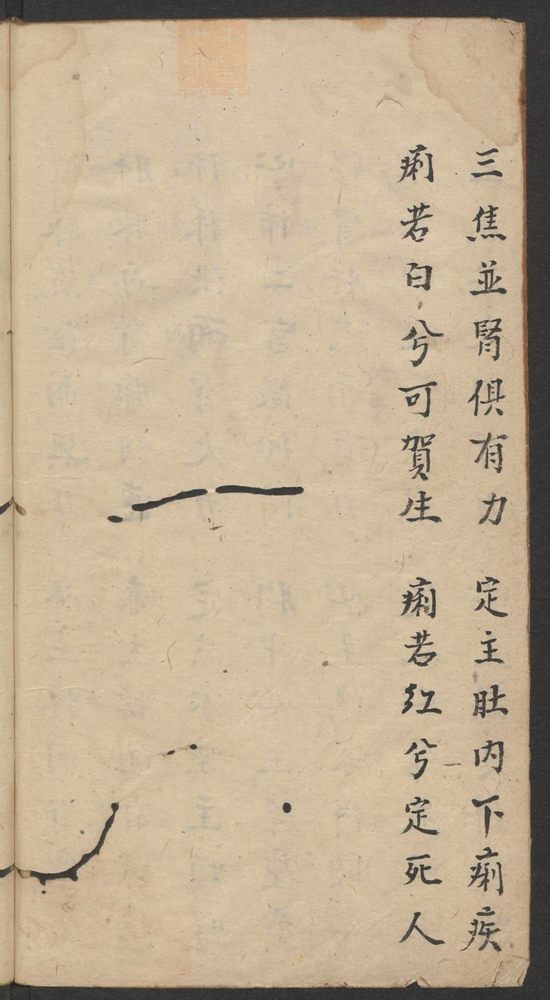 三焦並腎俱有力 定主肚内下痢疾
痢若白兮可賀生 痢若紅兮定死人